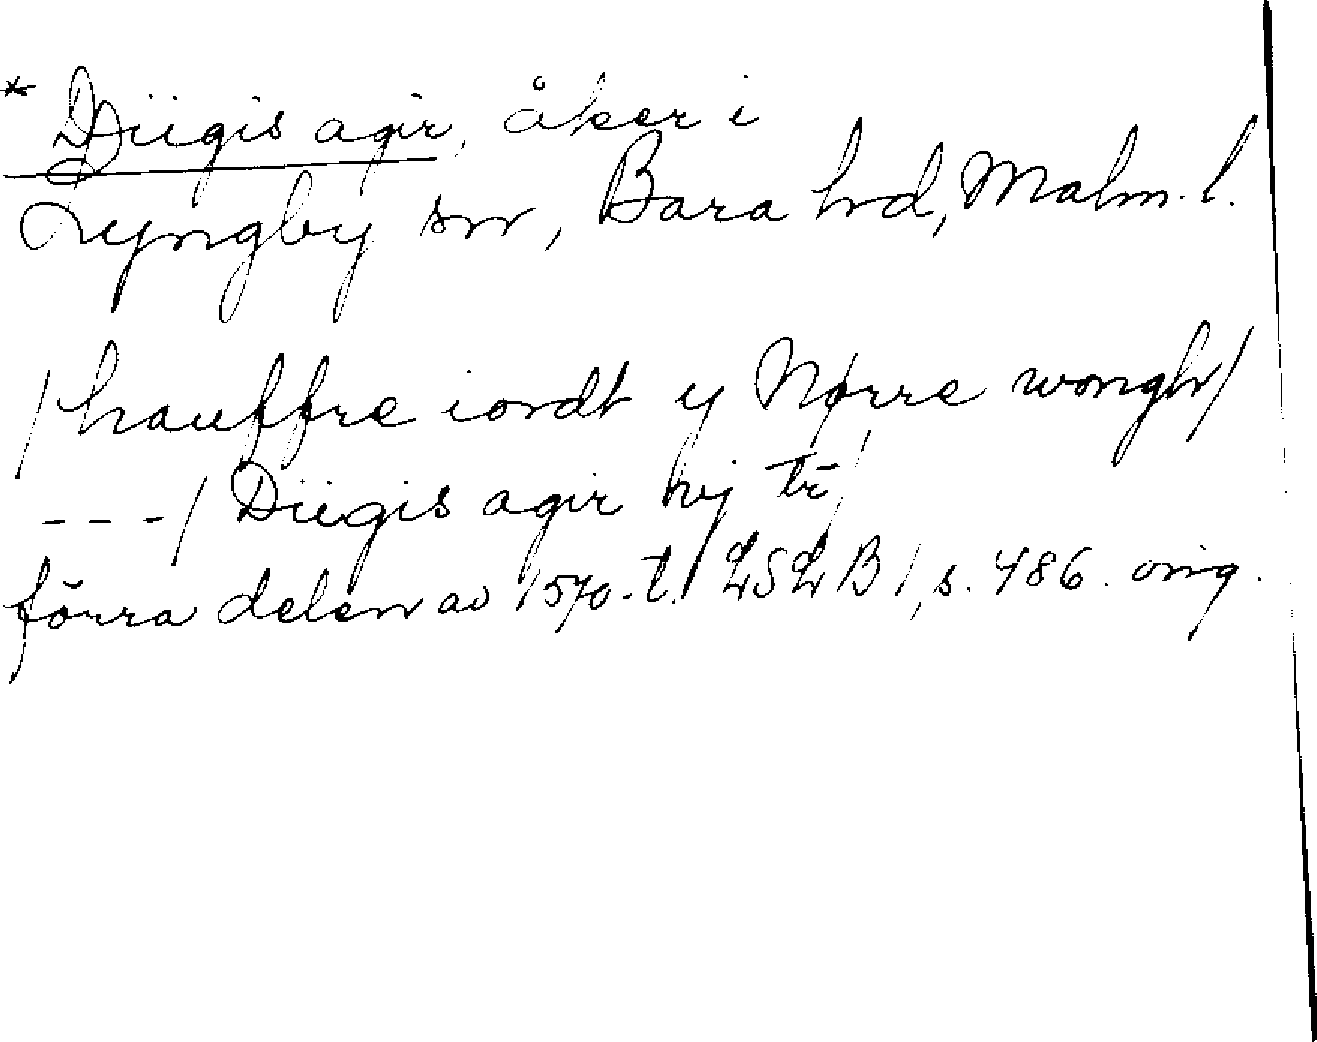 * Diigis agir, åker i
Lyngby sn, Bara hd, Malm. l.
/hauffre iordt y Nørre wongh/
---/ Diigis agir hij tr/
förra delen av 1570-t. LSLB 1, s. 486. orig.